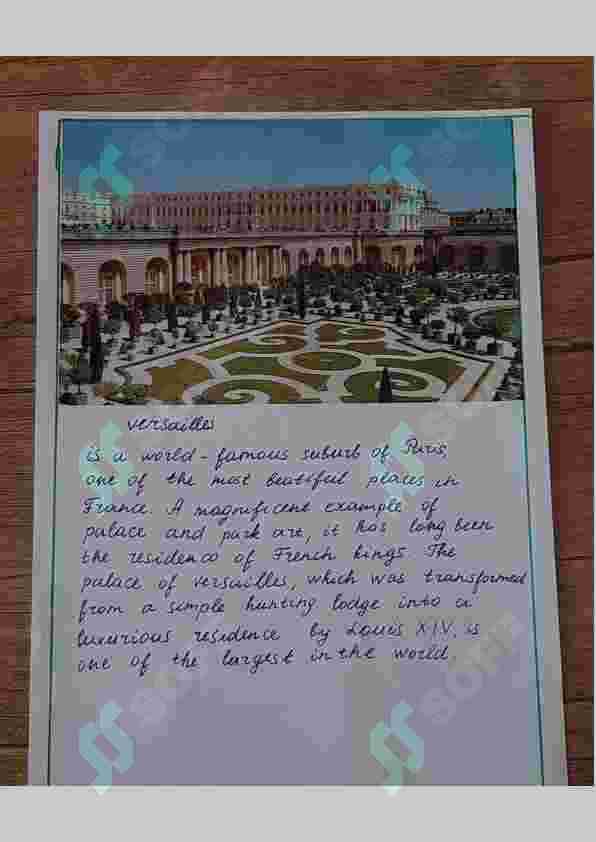 versailles
is a world-famous suburb of Paris,
one of the most beatiful places in
France. A magnificent example of
palace and park art, it has long been
the residence of French kings. The
palace of versailles, which was transformed
from a simple hunting lodge into a
luxurious residence by Louis XIV, is
one of the largest in the world.